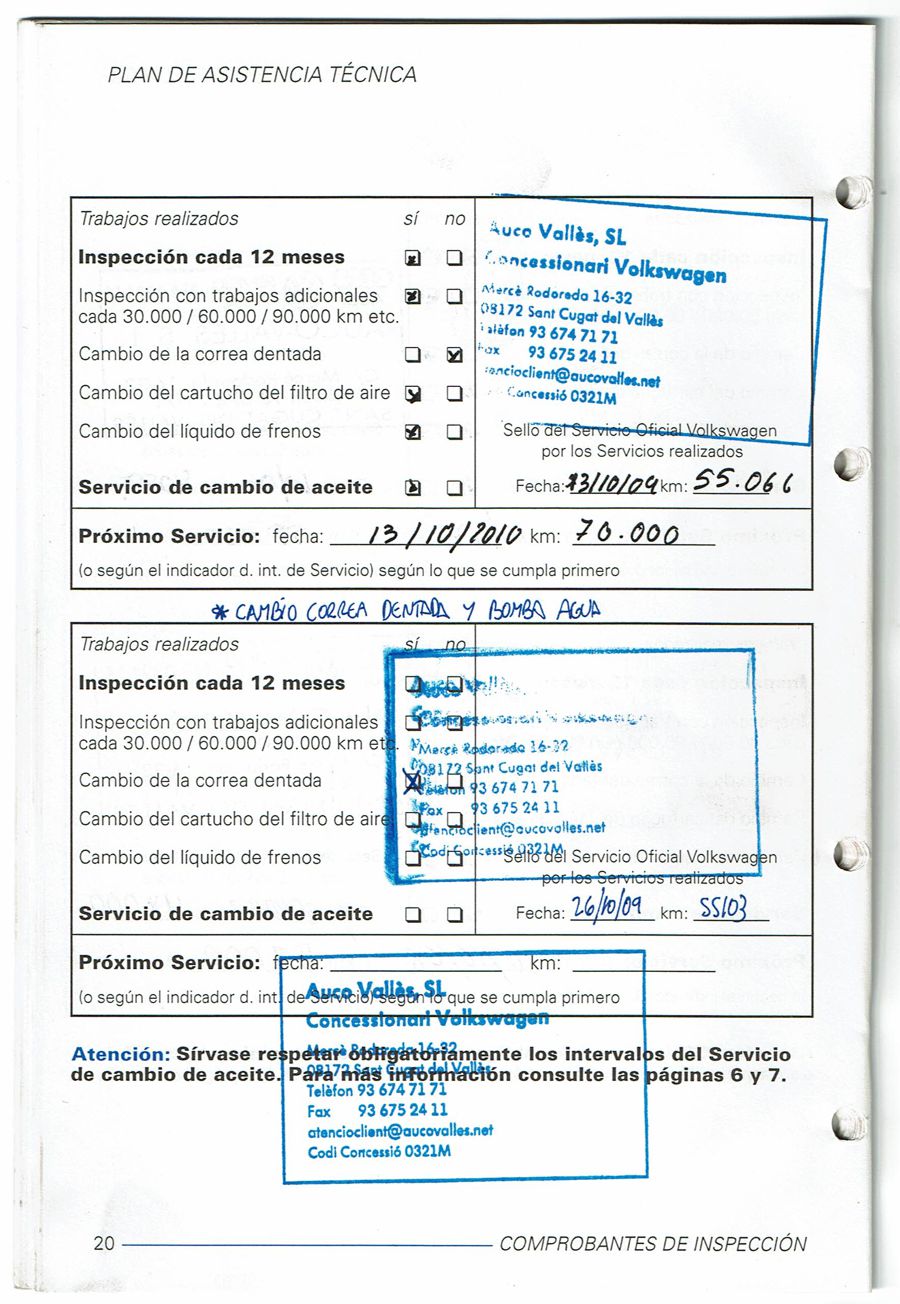 PLAN DE ASISTENCIA TÉCNICA
Trabajos realizados sí no
Inspección cada 12 meses
Inspección con trabajos adicionales
cada 30.000 / 60.000 / 90.000 km etc.
Cambio de la correa dentada
Cambio del cartucho del filtro de aire
Cambio del líquido de frenos
Servicio de cambio de aceite
Auco Vallès, SL
Concessionari Volkswagen
Mercè Rodoreda 16-32
08172 Sant Cugat del Vallès
Telèfon 93 674 71 71
Fax 93 675 24 11
atencioclient@aucovalles.net
Concessió 0321M
Sello del Servicio Oficial Volkswagen
por los Servicios realizados
Fecha: 13/10/09 km: 55.066
Próximo Servicio: fecha: 13/10/2010 km: 70.000
(o según el indicador d. int. de Servicio) según lo que se cumpla primero
* CAMBIO CORREA DENTADA Y BOMBA AGUA
Trabajos realizados sí no
Inspección cada 12 meses
Inspección con trabajos adicionales
cada 30.000 / 60.000 / 90.000 km etc.
Cambio de la correa dentada
Cambio del cartucho del filtro de aire
Cambio del líquido de frenos
Servicio de cambio de aceite
Auco Vallès,
Concessionari Volkswagen
Mercè Rodoreda 16-32
08172 Sant Cugat del Vallès
Telèfon 93 674 71 71
Fax 93 675 24 11
atencioclient@aucovalles.net
Codi Concessió 0321M
Sello del Servicio Oficial Volkswagen
por los Servicios realizados
Fecha: 26/10/09 km: 55103
Próximo Servicio: fecha: km:
(o según el indicador d. int. de Servicio) según lo que se cumpla primero
Auco Vallès, SL
Concessionari Volkswagen
Mercè Rodoreda 16-32
08172 Sant Cugat del Vallès
Telèfon 93 674 71 71
Fax 93 675 24 11
atencioclient@aucovalles.net
Codi Concessió 0321M
Atención: Sírvase respetar obligatoriamente los intervalos del Servicio
de cambio de aceite. Para más información consulte las páginas 6 y 7.
20 COMPROBANTES DE INSPECCIÓN